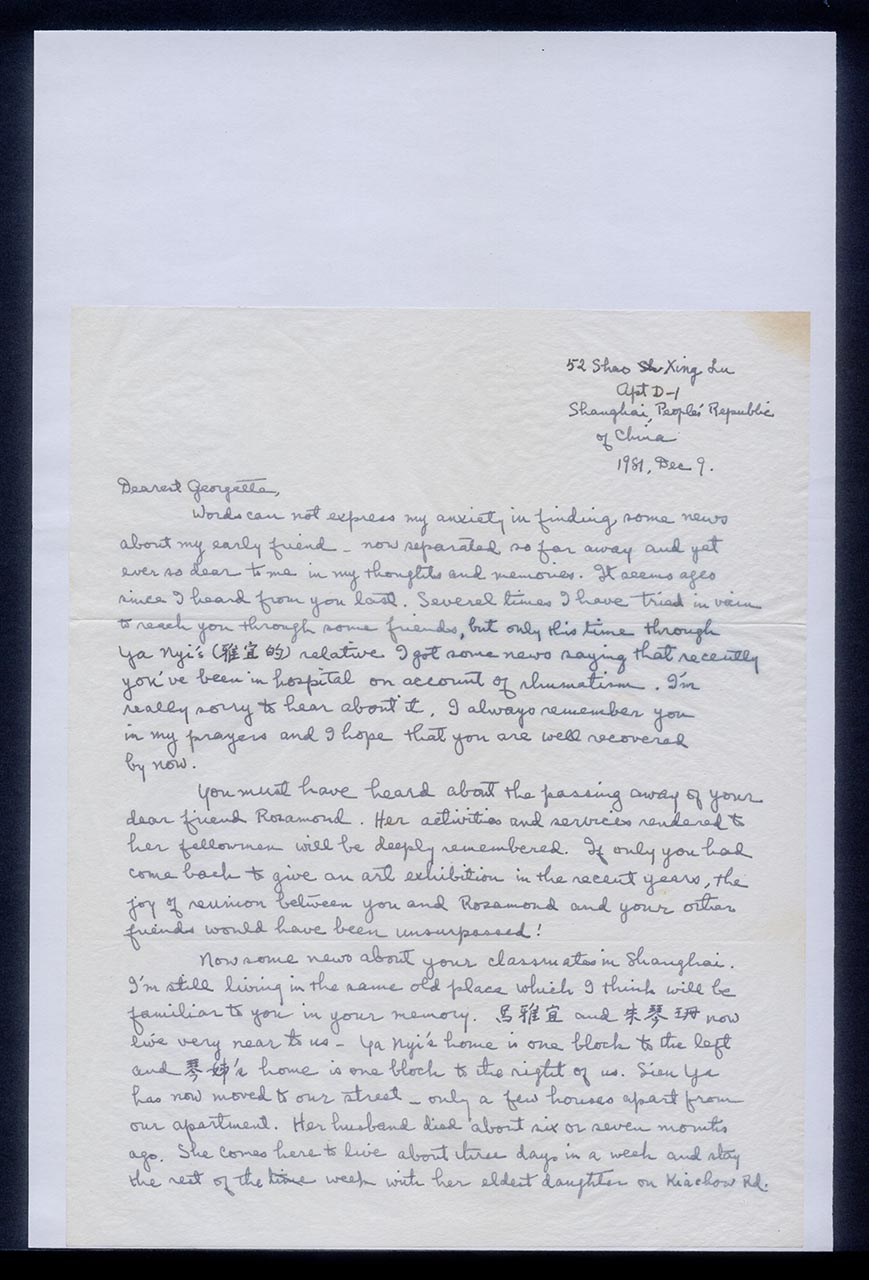 52 Shao Xing Lu
Apt D-1
Shanghai, People's Republic
of China
1981, Dec 9.
Dearest Georgette,
Words can not express my anxiety in finding some news
about my early friend - now separated so far away and yet
ever so dear to me in my thoughts and memories. It seems ages
since I heard from you last. Several times I have tried in vain
to reach you through some friends, but only this time through
Ya Nyi's (雅宜的) relative I got some news saying that recently
you've been in hospital on account of rhumatism. I'm
really sorry to hear about it. I always remember you
in my prayers and I hope that you are well recovered
by now.
You must have heard about the passing away of your
dear friend Rosamond. Her activities and services rendered to
her fellowmen will be deeply remembered. If only you had
come back to give an art exhibition in the recent years, the
joy of reunion between you and Rosamond and your other
friends would have been unsurpassed!
Now some news about your classmates in Shanghai.
I'm still living in the same old place which I think will be
familiar to you in your memory. 吕雅宜 and 朱琴珊 now
live very near to us - Ya Nyi's home is one block to the left
and 琴姊's home is one block to the right of us. Sieu Ya
has now moved to our street - only a few houses apart from
our apartment. Her husband died about six or seven months
ago. She comes here to live about three days in a week and stay
the rest of the time week with her eldest daughter on Kiachow Rd.